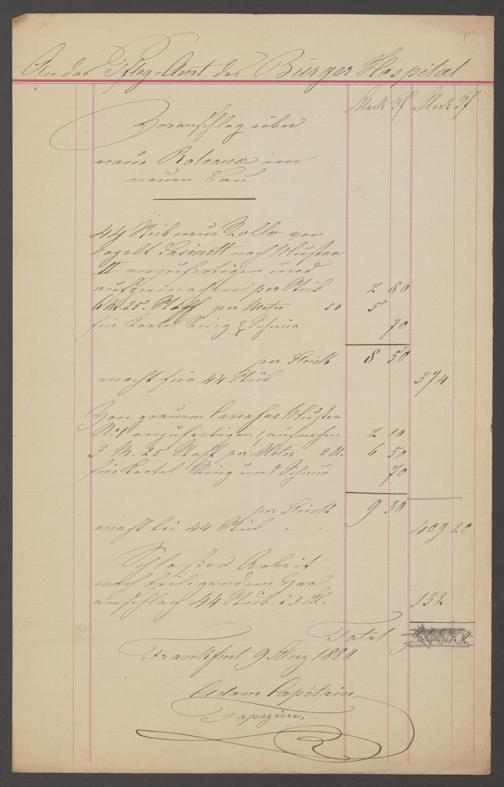 An das Pfleg-Amt des Bürger Hospital
Mark Pf Mark Pf
Voranschlag über
neue Roleaux im
neuen Bau
44 Stück neue Rollo von
nach Muster
II anzufertigen und
aufzumachen per Stück 2 80
6 M. 25 Stoff per Meter 80 5
für Kortel Ring & Schnur 70
per Stück 8 50
macht für 44 Stück 374
Von grauem Canefas Muster
No 1 anzufertigen & aufmachen 2 10
3 M. 25 Stoff per Meter 2 M. 6 50
für Kortel Ring und Schnur 70
per Stück 9 30
macht bei 44 Stück 409 20
Schlosser Arbeit
nach beiligendem Vor
anschlag 44 Stück à 3 M. 132
Total
Frankfurt 9 März 1884
Adam Capitain
Tapezirer